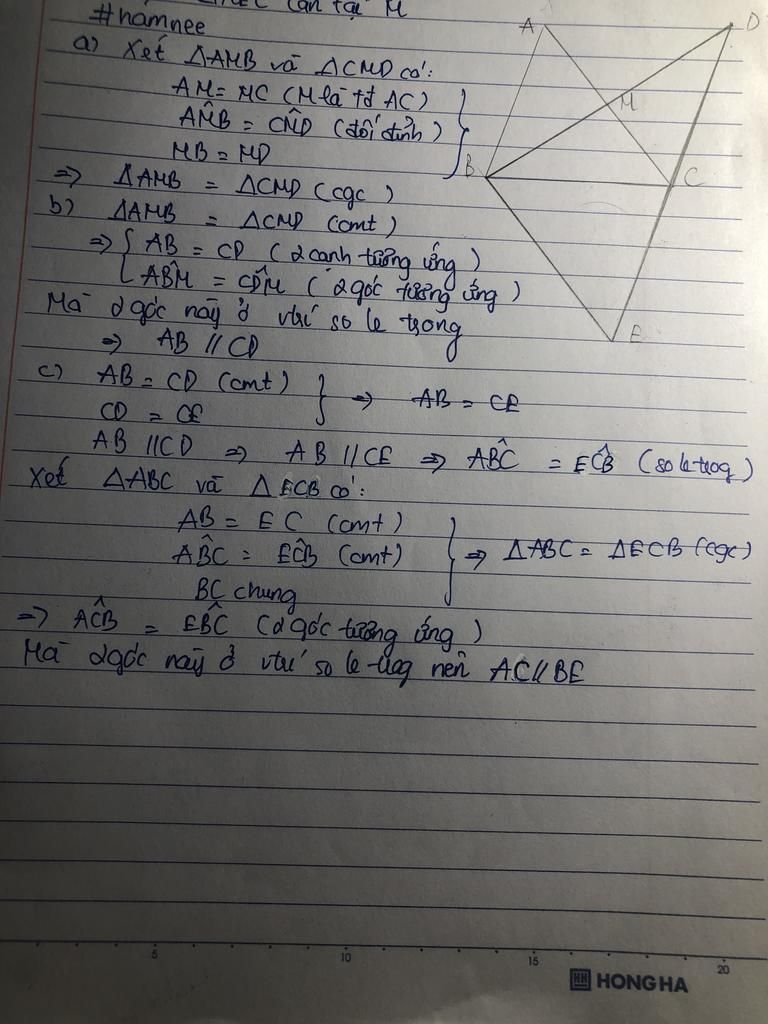 cân tại M
#namnee
a) Xét ΔAMB và ΔCMD có:
AM = MC (M là tđ AC)
AM̂B = CM̂D (đối đỉnh)
MB = MD
=> ΔAMB = ΔCMD (cgc)
b) ΔAMB = ΔCMD (cmt)
=> { AB = CD (2 cạnh tương ứng)
AB̂M = CD̂M (2 góc tương ứng)
Mà 2 góc này ở vtrí so le trong
=> AB // CD
c) AB = CD (cmt)
CD = CE } => AB = CE
AB // CD => AB // CE => AB̂C = EĈB (so le trog)
Xét ΔABC và ΔECB có:
AB = EC (cmt)
AB̂C = EĈB (cmt) } => ΔABC = ΔECB (cgc)
BC chung
=> AĈB = EB̂C (2 góc tương ứng)
Mà 2 góc này ở vtrí so le trog nên AC // BE
A D
M
B C
E
5 10 15 20
HH HONG HA